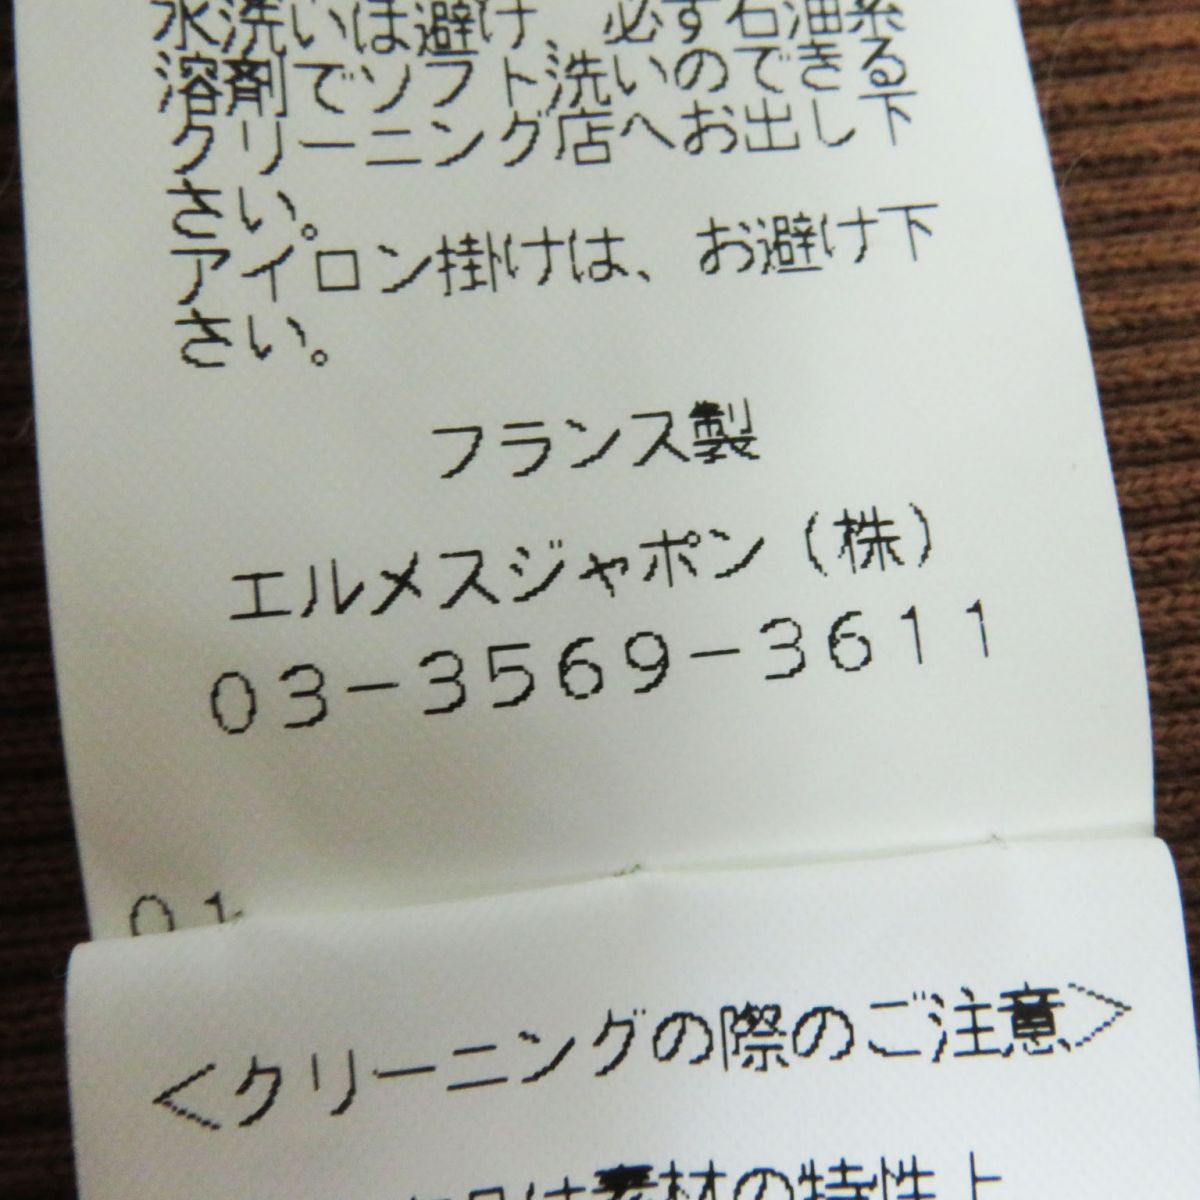 水洗いは避け、必ず石油系
溶剤でソフト洗いのできる
クリーニング店へお出し下
さい。
アイロン掛けは、お避け下
さい。
フランス製
エルメスジャポン（株）
03-3569-3611
01
<クリーニングの際のご注意>
は素材の特性上